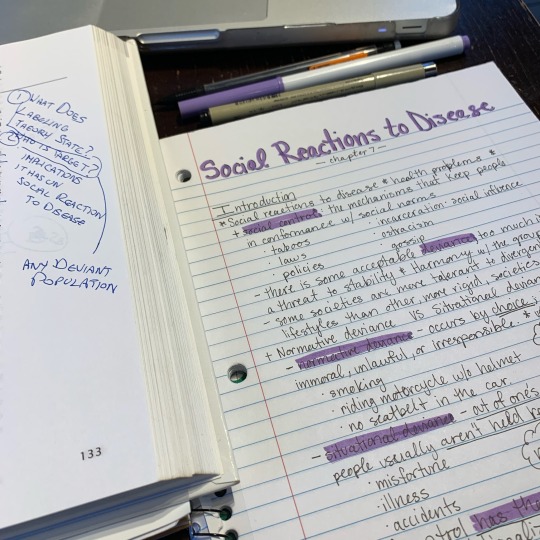 ① WHAT DOES
LABELING
THEORY STATE?
WHO IS TARGET?
IMPLICATIONS
IT HAS ON
SOCIAL REACTION
TO DISEASE
ANY DEVIANT
POPULATION
133
Social Reactions to Disease
— chapter 7 —
Introduction
* Social reactions to disease * health problems *
+ social control: the mechanisms that keep people
in conformance w/ social norms
· taboos · incarceration: social inference
· laws · ostracism
· policies · gossip
- there is some acceptable deviance, too much is
a threat to stability * Harmony w/ the group
- some societies are more tolerant to divergent
lifestyles than other, more rigid, societies
+ Normative deviance VS situational deviance
- normative deviance - occurs by choice;
immoral, unlawful, or irresponsible.
· smoking
· riding motorcycle w/o helmet
· no seatbelt in the car.
- situational deviance - out of one's
people usually aren't held
· misfortune
· illness
· accidents
has the